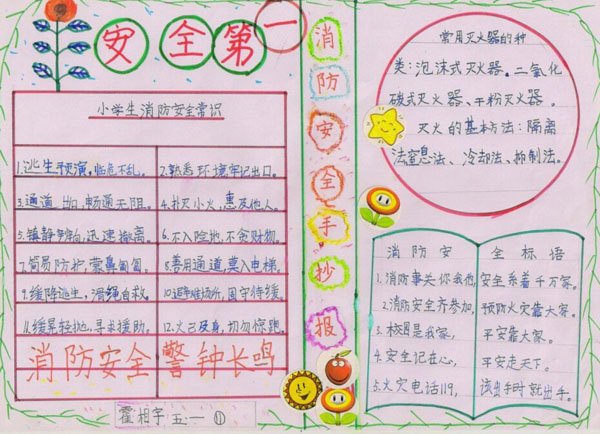 安全第一
小学生消防安全常识
1.逃生预演,临危不乱。
2.熟悉环境,牢记出口。
3.通道出口,畅通无阻。
4.扑灭小火,惠及他人。
5.镇静辨向,迅速撤离。
6.不入险地,不贪财物。
7.简易防护,蒙鼻匍匐。
8.善用通道,莫入电梯。
9.缓降逃生,滑绳自救。
10.避难场所,固守待援。
11.缓晃轻抛,寻求援助。
12.火已及身,切勿惊跑。
消防安全 警钟长鸣
霍相宇 五一 ⑪
消防安全手抄报
常用灭火器的种
类:泡沫式灭火器。二氧化
碳式灭火器、干粉灭火器。
灭火的基本方法:隔离
法窒息法、冷却法、抑制法。
消防安全标语
1.消防事关你我他,安全系着千万家。
2.消防安全齐参加,预防火灾靠大家。
3.校园是我家,平安靠大家。
4.安全记在心,平安走天下。
5.火灾电话119,该出手时就出手。